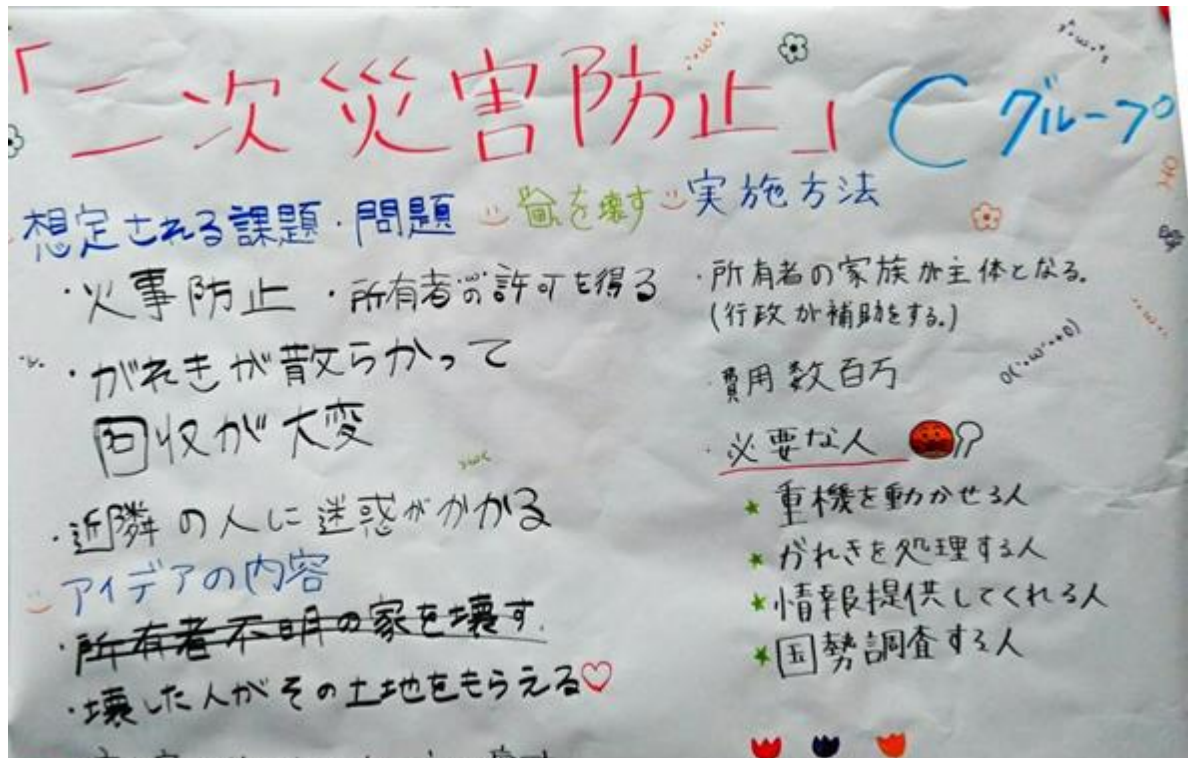 「二次災害防止」 Cグループ
想定される課題・問題
・火事防止 ・所有者の許可を得る
・がれきが散らかって
回収が大変
・近隣の人に迷惑がかかる
アイデアの内容
・所有者不明の家を壊す
・壊した人がその土地をもらえる♡
を壊す
実施方法
・所有者の家族が主体となる。
(行政が補助をする。)
・費用数百万
・必要な人
★重機を動かせる人
★がれきを処理する人
★情報提供してくれる人
★国勢調査する人